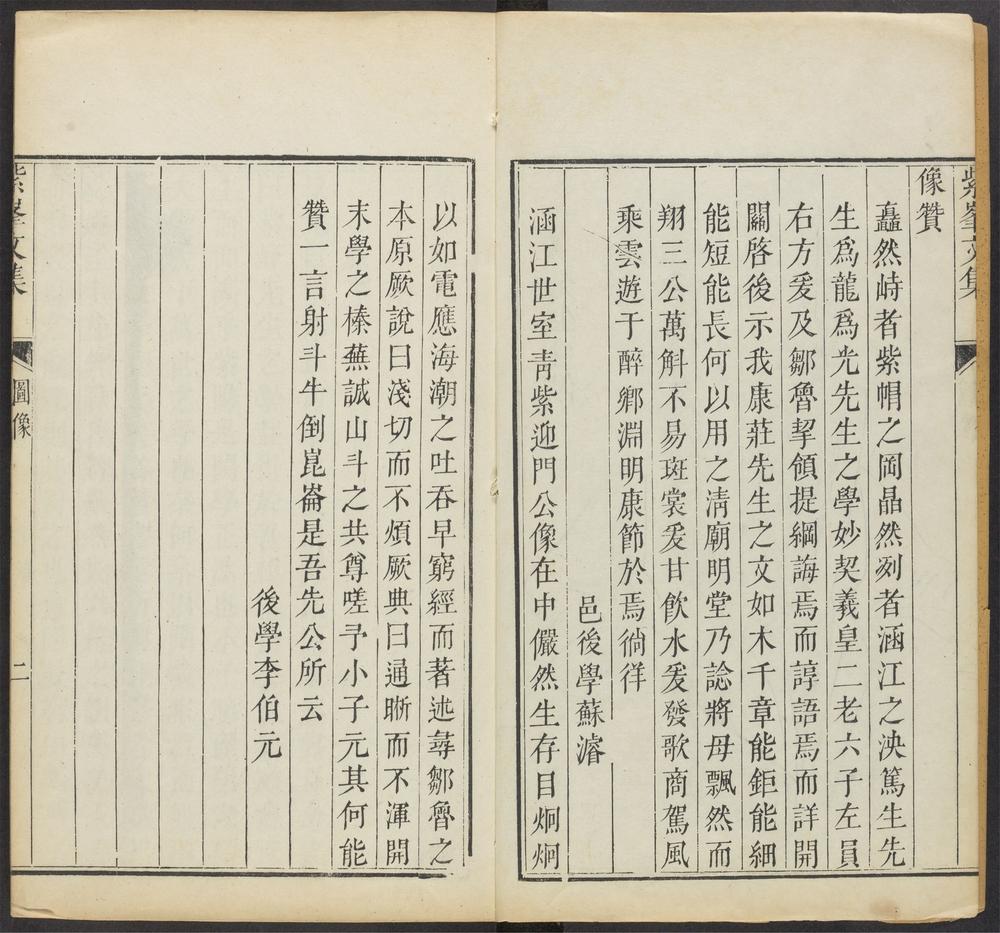 紫峯文集
像贊
矗然峙者紫帽之岡晶然刻者涵江之泱篤生先
生爲龍爲光先生之學妙契羲皇二老六子左員
右方爰及鄒魯挈領提綱誨焉而諄語焉而詳開
關啓後示我康莊先生之文如木千章能鉅能細
能短能長何以用之清廟明堂乃諗將母飄然而
翔三公萬斛不易斑裳爰甘飲水爰發歌商駕風
乘雲遊于醉鄉淵明康節於焉徜徉
邑後學蘇濬
涵江世室青紫迎門公像在中儼然生存目烱烱
以如電應海潮之吐吞早窮經而著述尋鄒魯之
本原厥說曰淺切而不煩厥典曰通晰而不渾開
末學之榛蕪誠山斗之共尊嗟予小子元其何能
贊一言射斗牛倒崑崙是吾先公所云
後學李伯元
紫峯文集
圖像
二